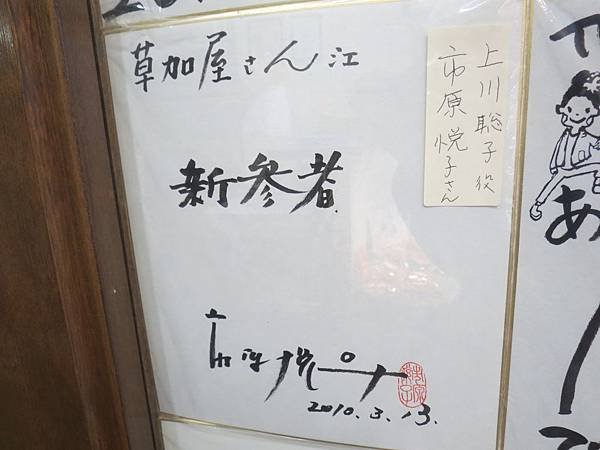 草加屋さん江
新参者
市原悦子
2010.3.13.
上川聡子役
市原悦子さん
あ